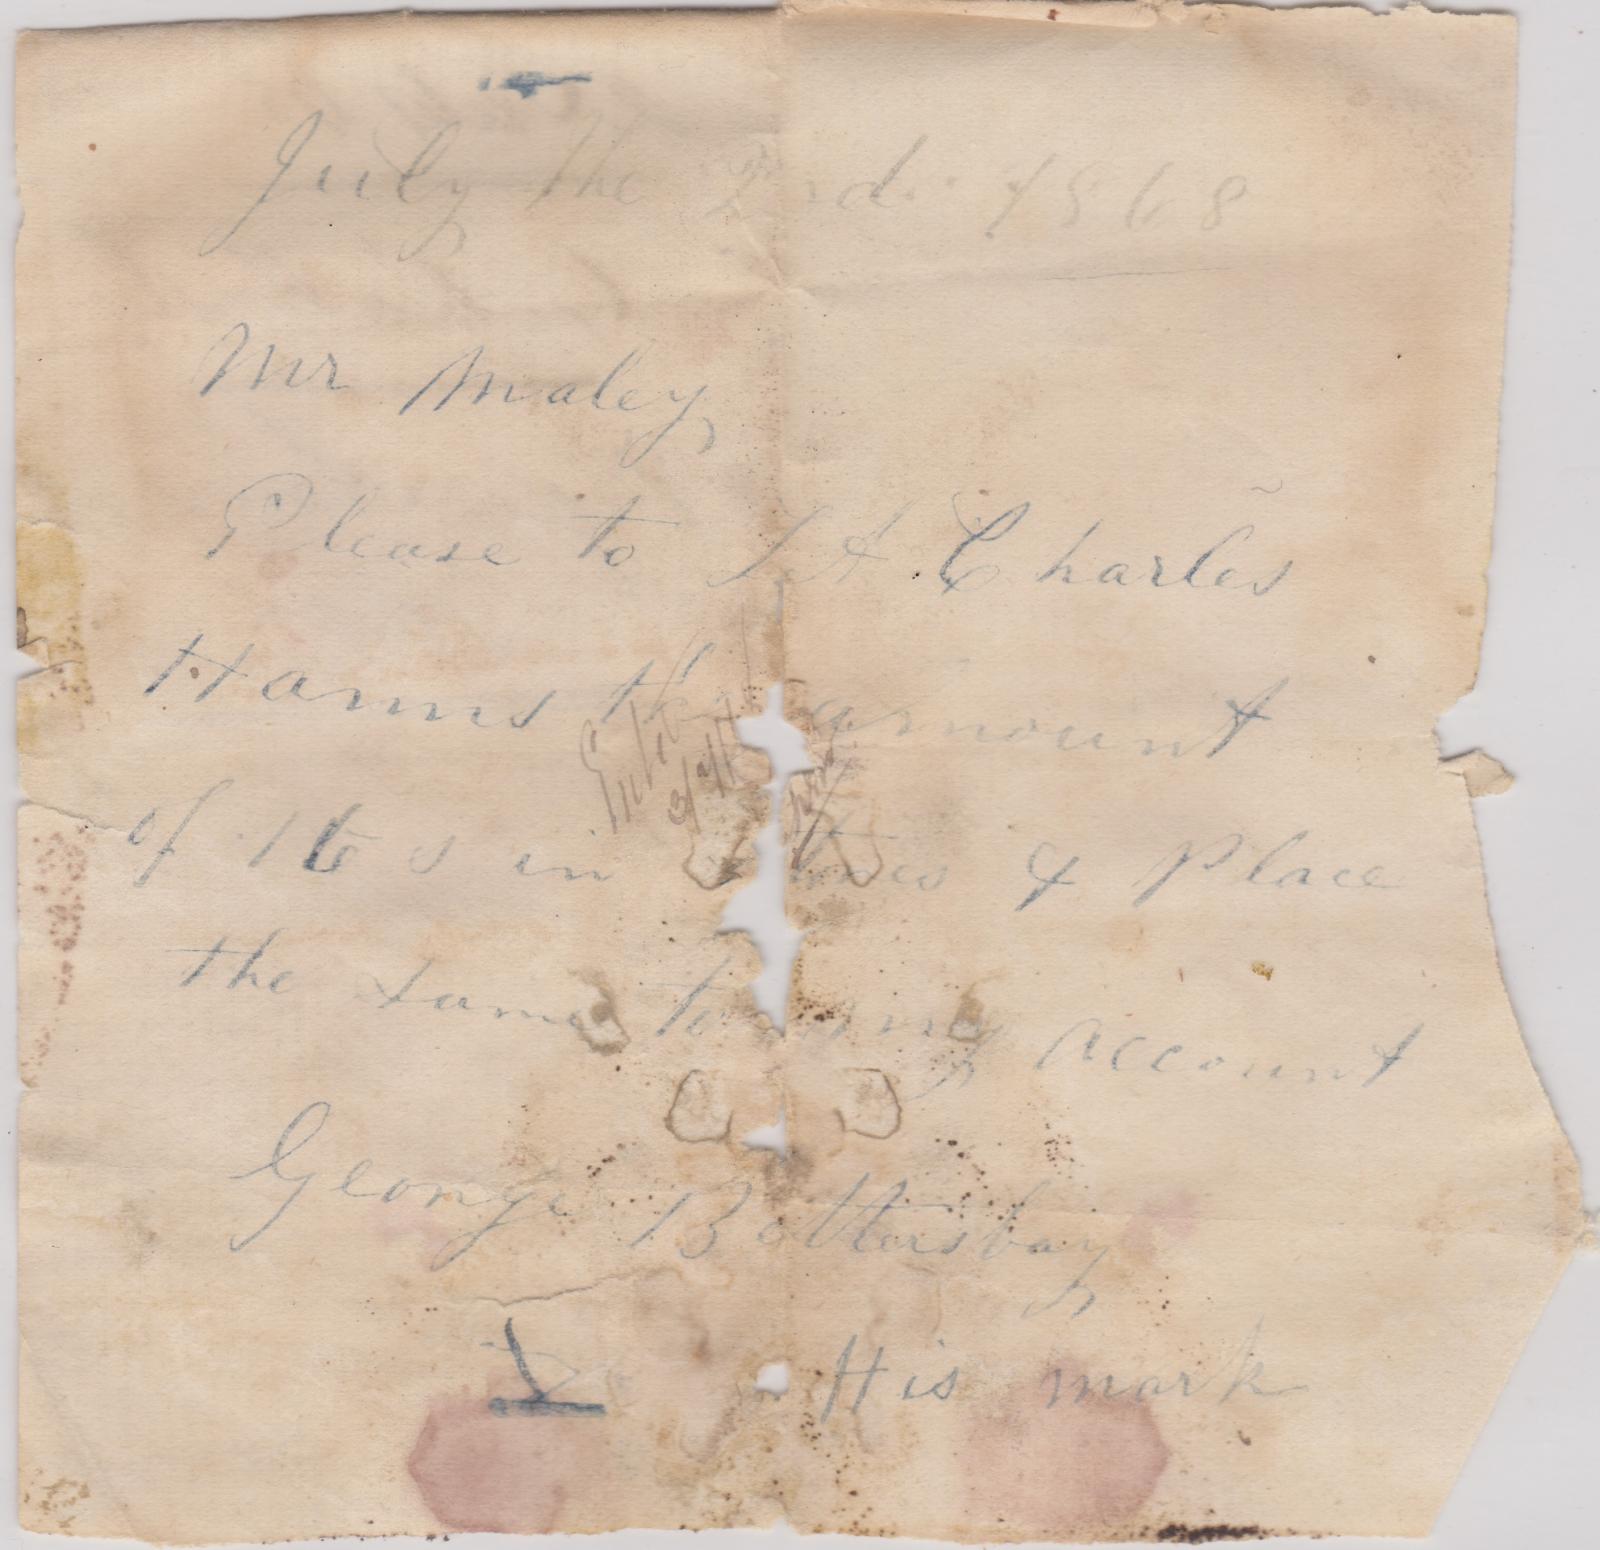 July the 2nd 1868
Mr Maley
Please to L A Charles
Hanns the amount
of 16 s in & Place
the same to my account
George Battersbay
X His mark